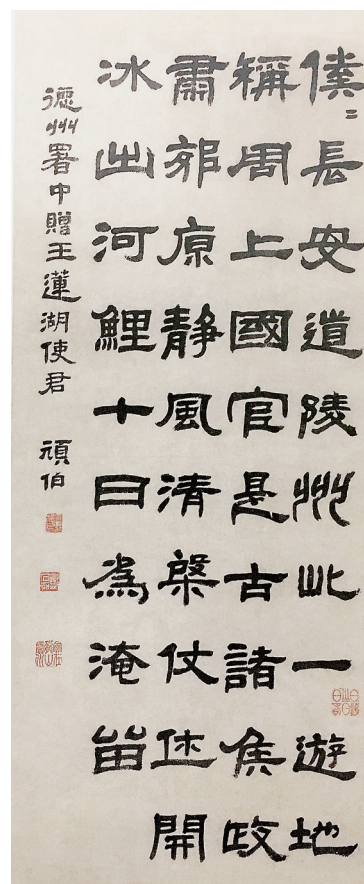 僕〻長安道陵州此一遊地
稱周上國官是古諸侯政
肅郊原靜風清棨仗休開
冰出河鯉十日為淹留
德州署中贈王蓮湖使君 頑伯